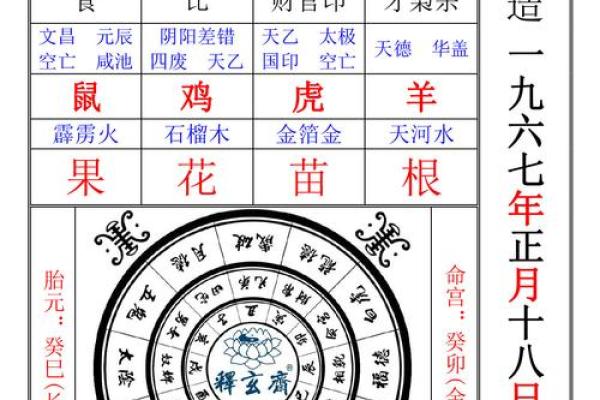 食 比 财官印 才枭杀
文昌 元辰 阴阳差错 天乙 太极 天德 华盖
空亡 咸池 四废 天乙 国印 空亡
鼠 鸡 虎 羊
霹雳火 石榴木 金箔金 天河水
果 花 苗 根
造一九六七年正月十八日
胎元：癸巳(长
命宫：癸卯(金
岁破
龙德
白虎
福德
月德
五鬼
太阴
兄弟
释玄斋